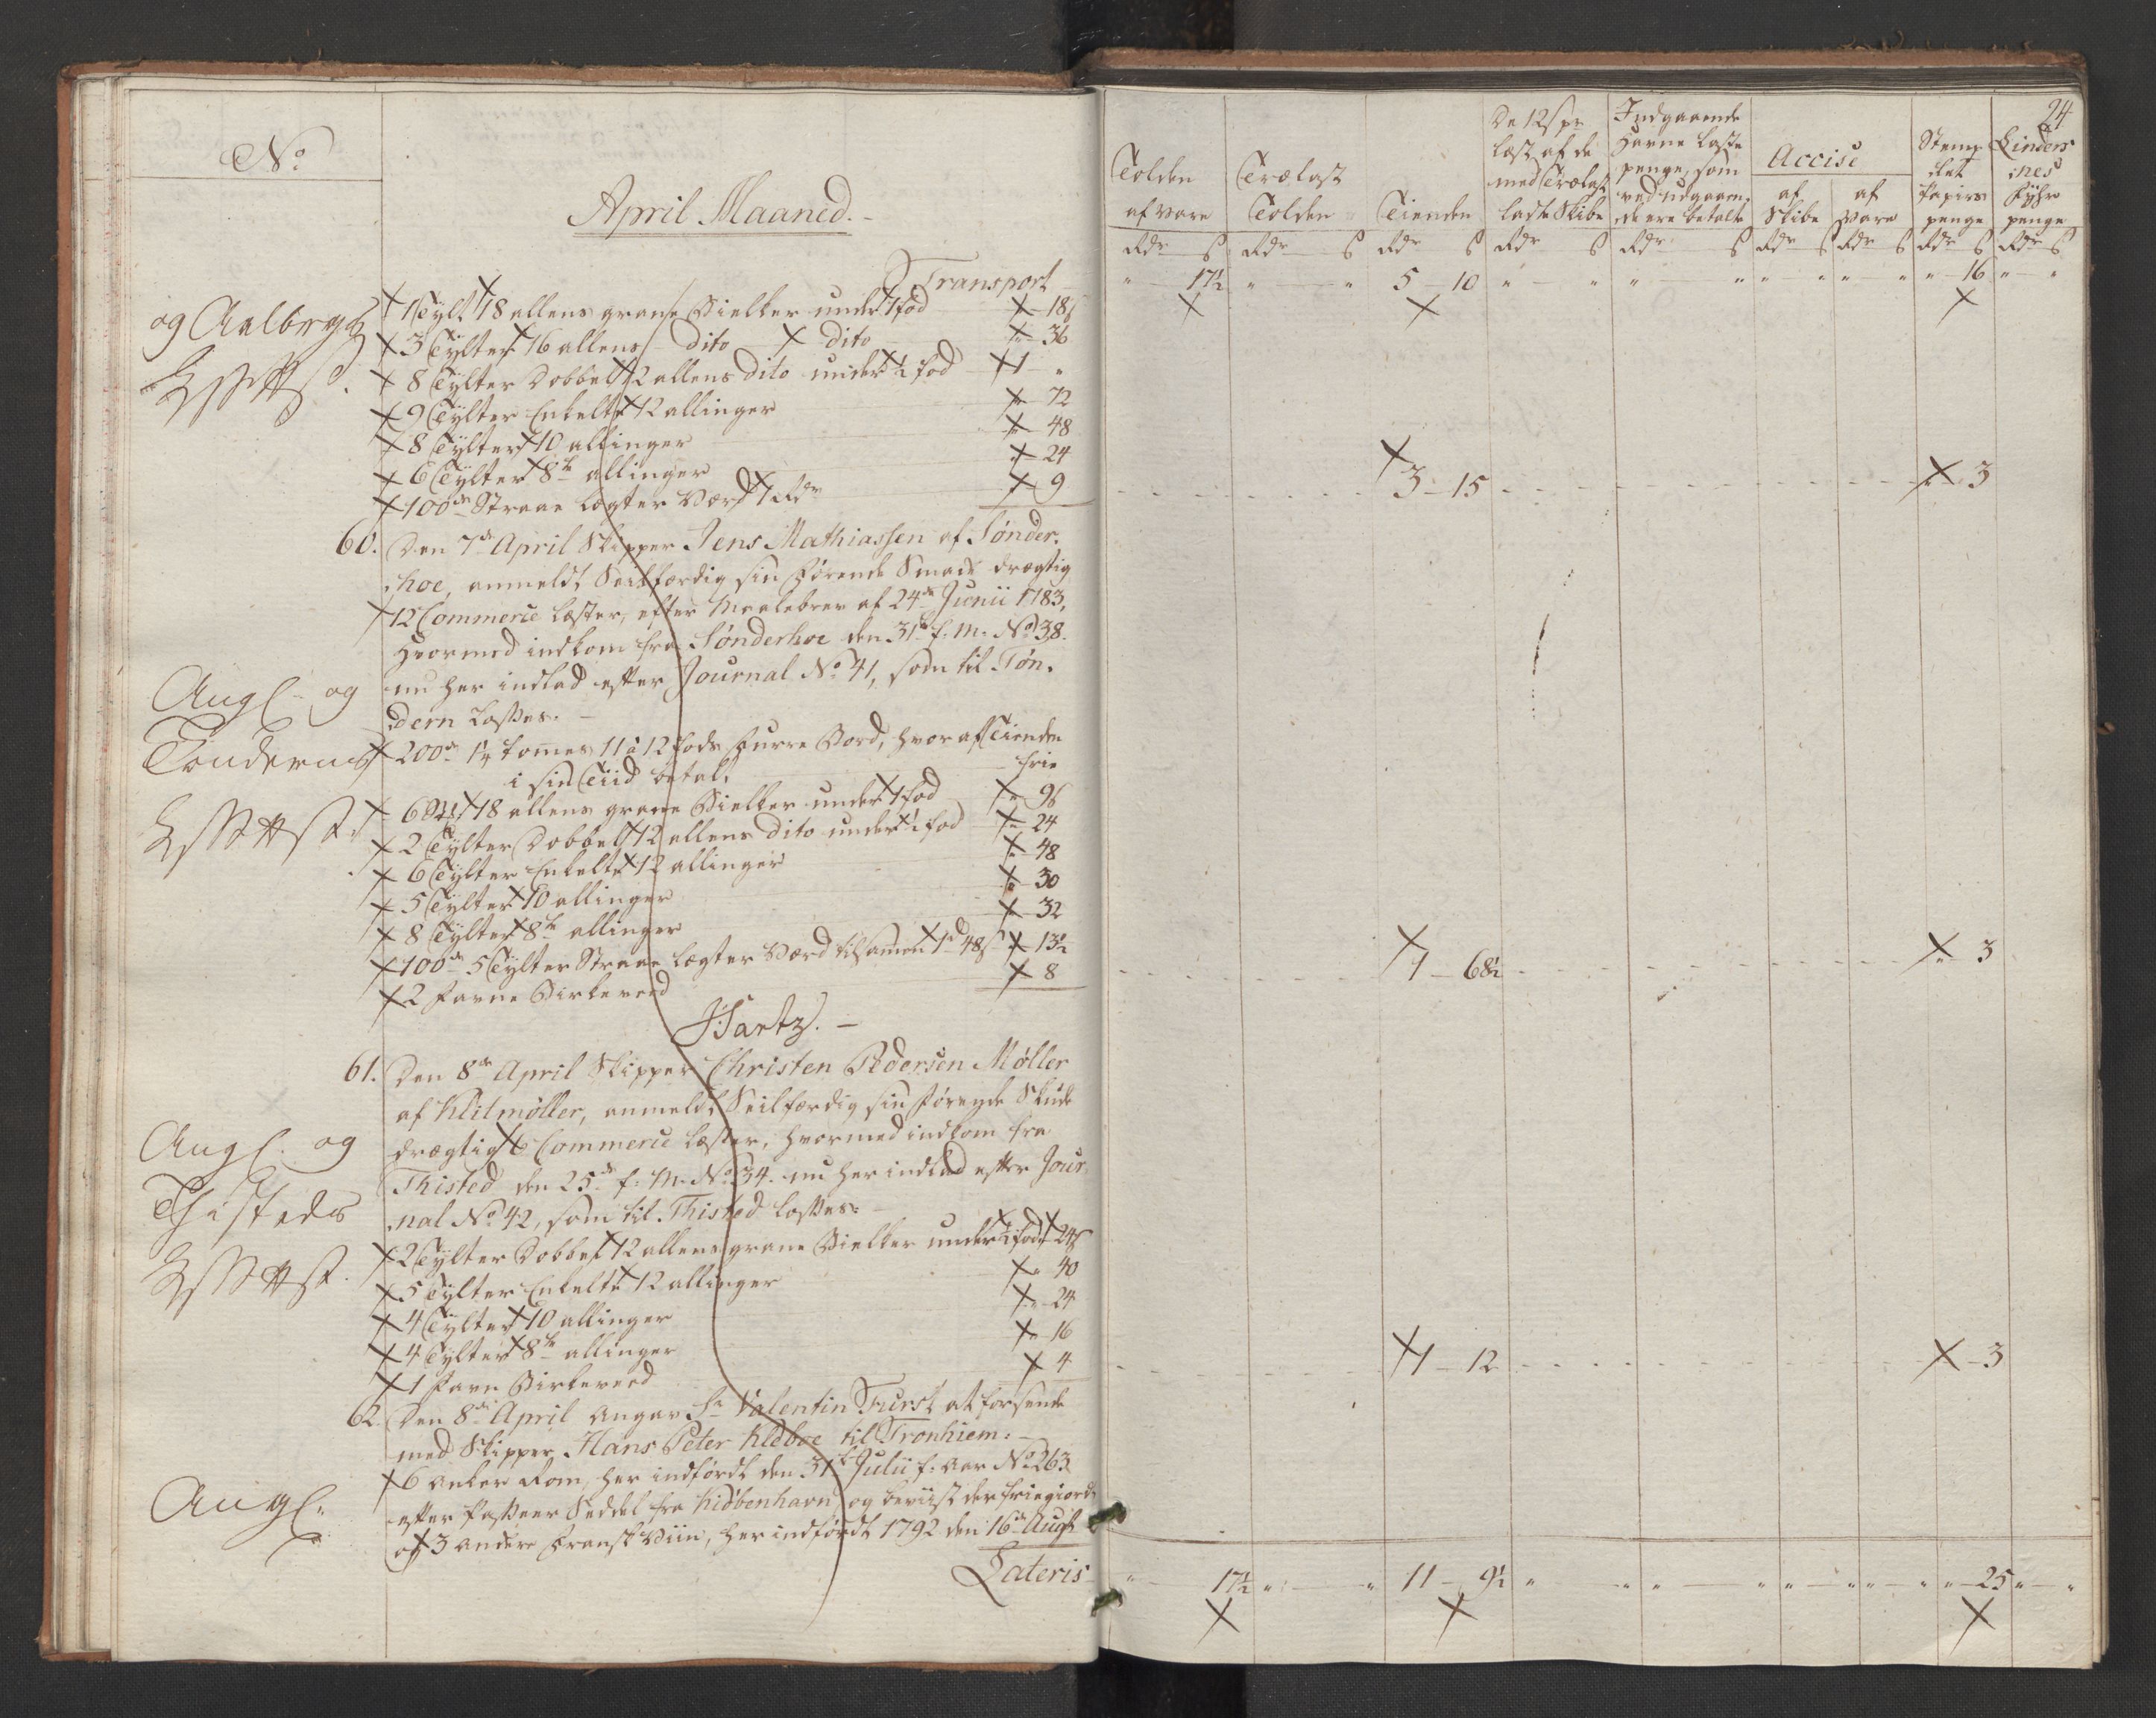 No
April Maaned.
Transport
og Aalborgs
1 Tylt 18 allens grane Bielker under 1 fod " 18ß
3 Tylter 16 allens dito dito " 36
8 Tylter Dobbelt 12 allens dito under ½ fod 1 "
9 Tylter Enkelte 12 allinger " 72
8 Tylter 10 allinger " 48
6 Tylter 8te allinger " 24
100de Straae Lægter Værd 1 Rdr " 9
60. Den 7de April Skipper Jens Mathiassen af Sønder-
hoe, anmeldt Seilfærdig sin førende Smack drægtig
12 Commerce læster, efter Maalebrev af 24de Junii 1783,
hvormed indkom fra Sønderhoe den 31te f: M: No 38.
nu her indlad efter Journal No 41, som til Tøn-
dern Losses.
Angl. og
Tonderns
200de 1¼ tomes 11 à 12 fods Furre Bord, hvoraf Tienden
i sin Tiid betalt frie
6 St: 18 allens grane Bielker under 1 fod " 9ß
2 Tylter Dobbelt 12 allens dito under ½ fod " 24
6 Tylter Enkelte 12 allinger " 48
5 Tylter 10 allinger " 30
8 Tylter 8te allinger " 32
100de 5 Tylter Straae Lægter Værd tilsamen 1rd 48ß " 13½
2 Favne Birkeveed " 8
Hartz.
61. Den 8de April Skipper Christen Pedersen Møller
af Klitmøller, anmeldt Seilfærdig sin førende Skude
drægtig 6 Commerce læster, hvormed indkom fra
Thisted den 25de f: M: No 34. nu her indlad efter Jour-
nal No 42, som til Thisted losses.
Angl. og
Thisteds
2 Tylter Dobbelt 12 allens grane Bielker under ½ fod " 24ß
5 Tylter Enkelte 12 allinger " 40
4 Tylter 10 allinger " 24
4 Tylter 8te allinger " 16
1 Favn Birkeveed " 4
62. Den 8de April Angav Sr Valentin Fürst at forsende
med Skipper Hans Peter Kleboe til Tronhiem.
Angl.
6 Anker Rom, her indført den 31te Julii f: Aar No 263
efter Passeer Seddel fra Kiøbenhavn og beviist der friegiord
og 3 Ankere Fransk Viin, her indførdt 1792 den 16de Augt
Lateris
24
Tolden af Vare
Trælast Tolden
Tienden
De 12ß pr læst af de med Trælast ladte Skibe
Indgaaende Havne Laste penge, som ved udgaaende ere betalte
Accise
af Skibe
af Vare
Stemplet Papirs penge
Lindersnes Fyhr penge
Rdr ß Rdr ß Rdr ß Rdr ß Rdr ß Rdr ß Rdr ß Rdr ß Rdr ß
" 17½ " " 5 10 " " " " " " " " " 16 " "
3 15 " 3
1 68½ " 3
1 12 " 3
" 17½ " " 11 9½ " " " " " " " " " 25 " "